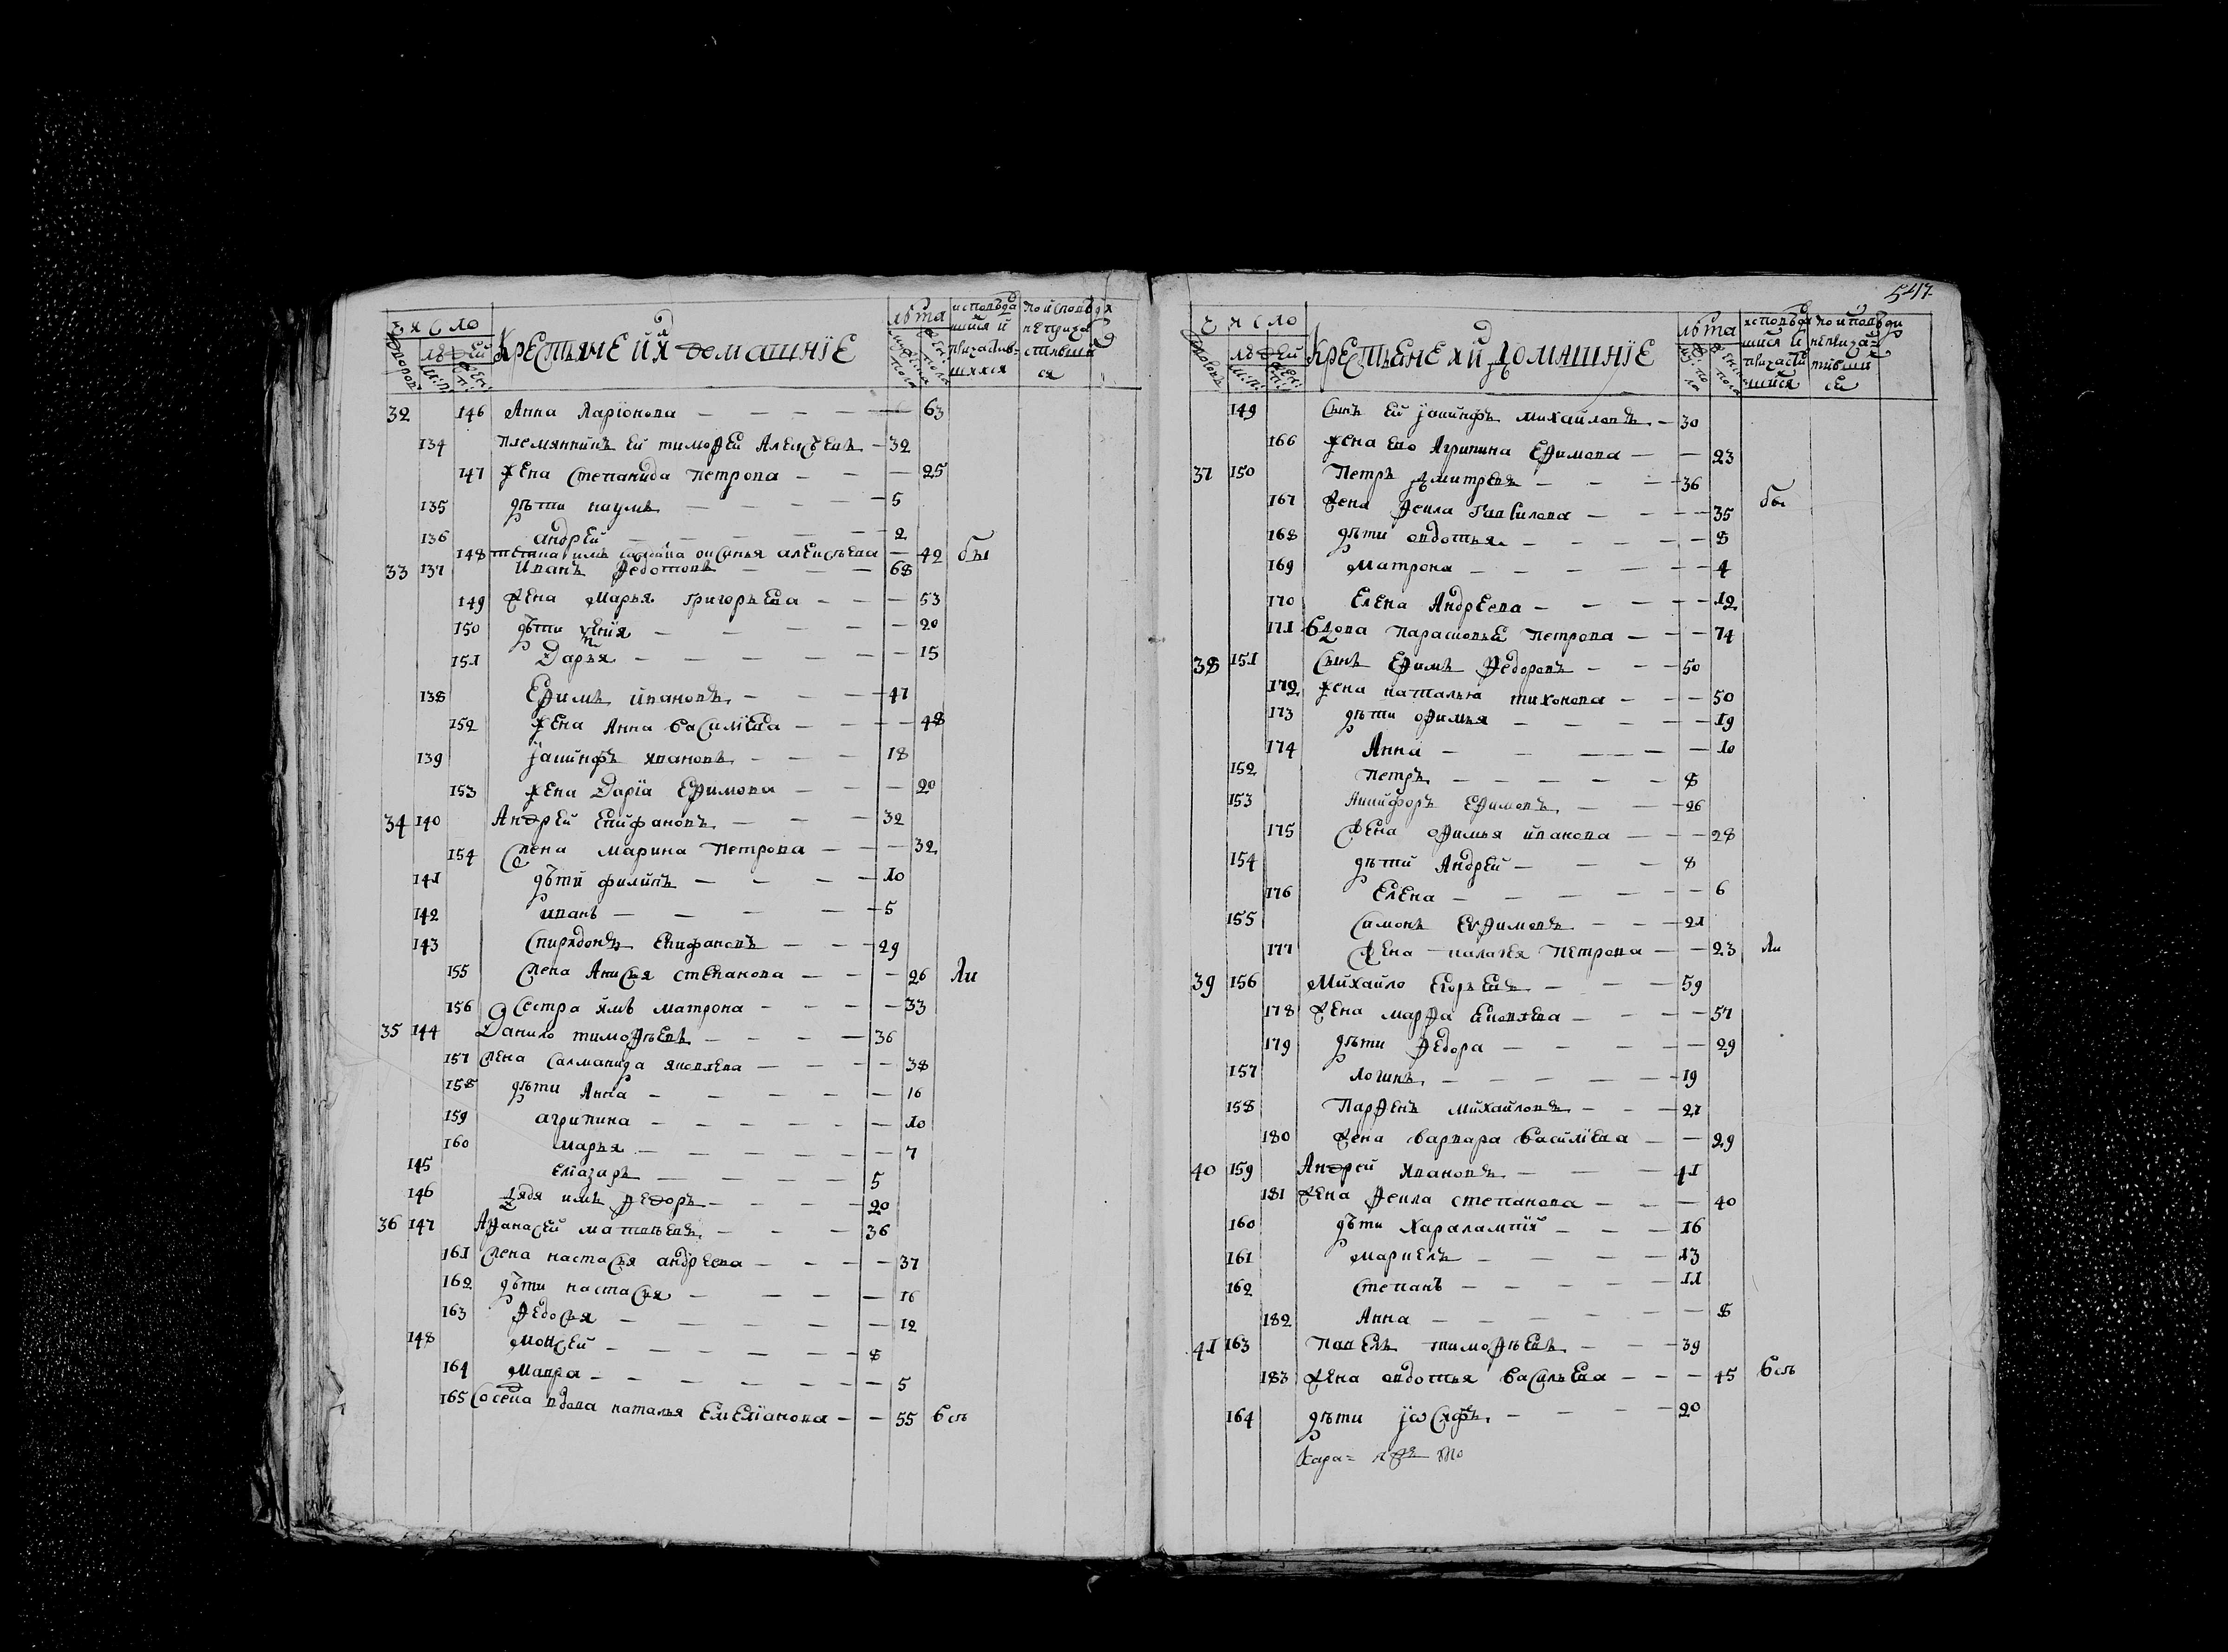 число
Крестьяне и их домашние
лѣта
32 146 Анна Ларїонова — — — — 63
134 племянникъ ей тимоѳей Алексѣевъ — 32
147 жена Степанида петрова — — — 25
135 дѣти наумъ — — — 5
136 андрей — — — — 2
148 тетка имъ вдова оксинья алексѣева — 42 бы
33 137 Иванъ Ѳедотовъ — — — 68
149 жена Марья григорьева — — — 53
150 дѣти — — — — 20
151 Дарья — — — — — 15
138 Еѳимъ ивановъ — — — 47
152 жена Анна василїева — — — — 48
139 їакинфъ ивановъ — — — 18
153 жена Дарїа Еѳимова — — — 20
34 140 Андрей Епифановъ — — — 32
154 жена марина петрова — — — 32
141 дѣти филипъ — — — — 10
142 иванъ — — — — 5
143 Спиридонъ Епифановъ — — — 29
155 жена Анисья степанова — — — 26 Ли
156 Сестра имъ матрона — — — — 33
35 144 Данило тимоѳѣевъ — — — — 36
157 жена Саламанида яковлева — — — — 38
158 дѣти Анна — — — — — 16
159 агрипина — — — — — 10
160 марья — — — — — 7
145 елїазаръ — — — — 5
146 дядя имъ ѳедоръ — — — — 20
36 147 Аѳанасей матвѣевъ — — — 36
161 жена настасья андреева — — — — 37
162 дѣти настасья — — — — 16
163 ѳедосья — — — — — 12
148 моисей — — — — — 8
164 мавра — — — — — — 5
165 Соседка вдова наталья Емелїанова — — 55 всѣ
547
число
Крестьяне и их домашнїе
лѣта
149 Сынъ ей їакинфъ михайловъ — 30
166 жена ево Агрипина Еѳимова — — 23
37 150 Петръ Дмитревъ — — — 36
167 жена ѳекла гаврилова — — — — 35 бы
168 дѣти овдотья — — — — — 8
169 матрона — — — — — 4
170 Елена Андреева — — — — 12
171 вдова парасковья петрова — — — 74
38 151 Сынъ Еѳимъ Ѳедоровъ — — — 50
172 жена наталья тихонова — — — 50
173 дѣти оѳимья — — — — — 19
174 Анна — — — — — 10
152 петръ — — — — — 8
153 Никифоръ Еѳимовъ — — — 26
175 жена оѳимья иванова — — — 28
154 дѣти Андрей — — — 8
176 Елена — — — — — 6
155 Симонъ Еѳимовъ — — — 21
177 жена палагея петрова — — 23 Ли
39 156 Михайло Егорьевъ — — — 59
178 жена марѳа — — — — 57
179 дѣти ѳедора — — — — — 29
157 логинъ — — — — — 19
158 парѳенъ михайловъ — — — 27
180 жена варвара василїева — — 29
40 159 Андрей ивановъ — — — 41
181 жена ѳекла степанова — — — 40
160 дѣти Харалампїй — — — 16
161 маркелъ — — — — 13
162 степанъ — — — — — 11
182 Анна — — — — — — 8
41 163 павелъ тимоѳѣевъ — — — 39
183 жена овдотья васильева — — — 45 всѣ
164 дѣти їосифъ — — — — 20